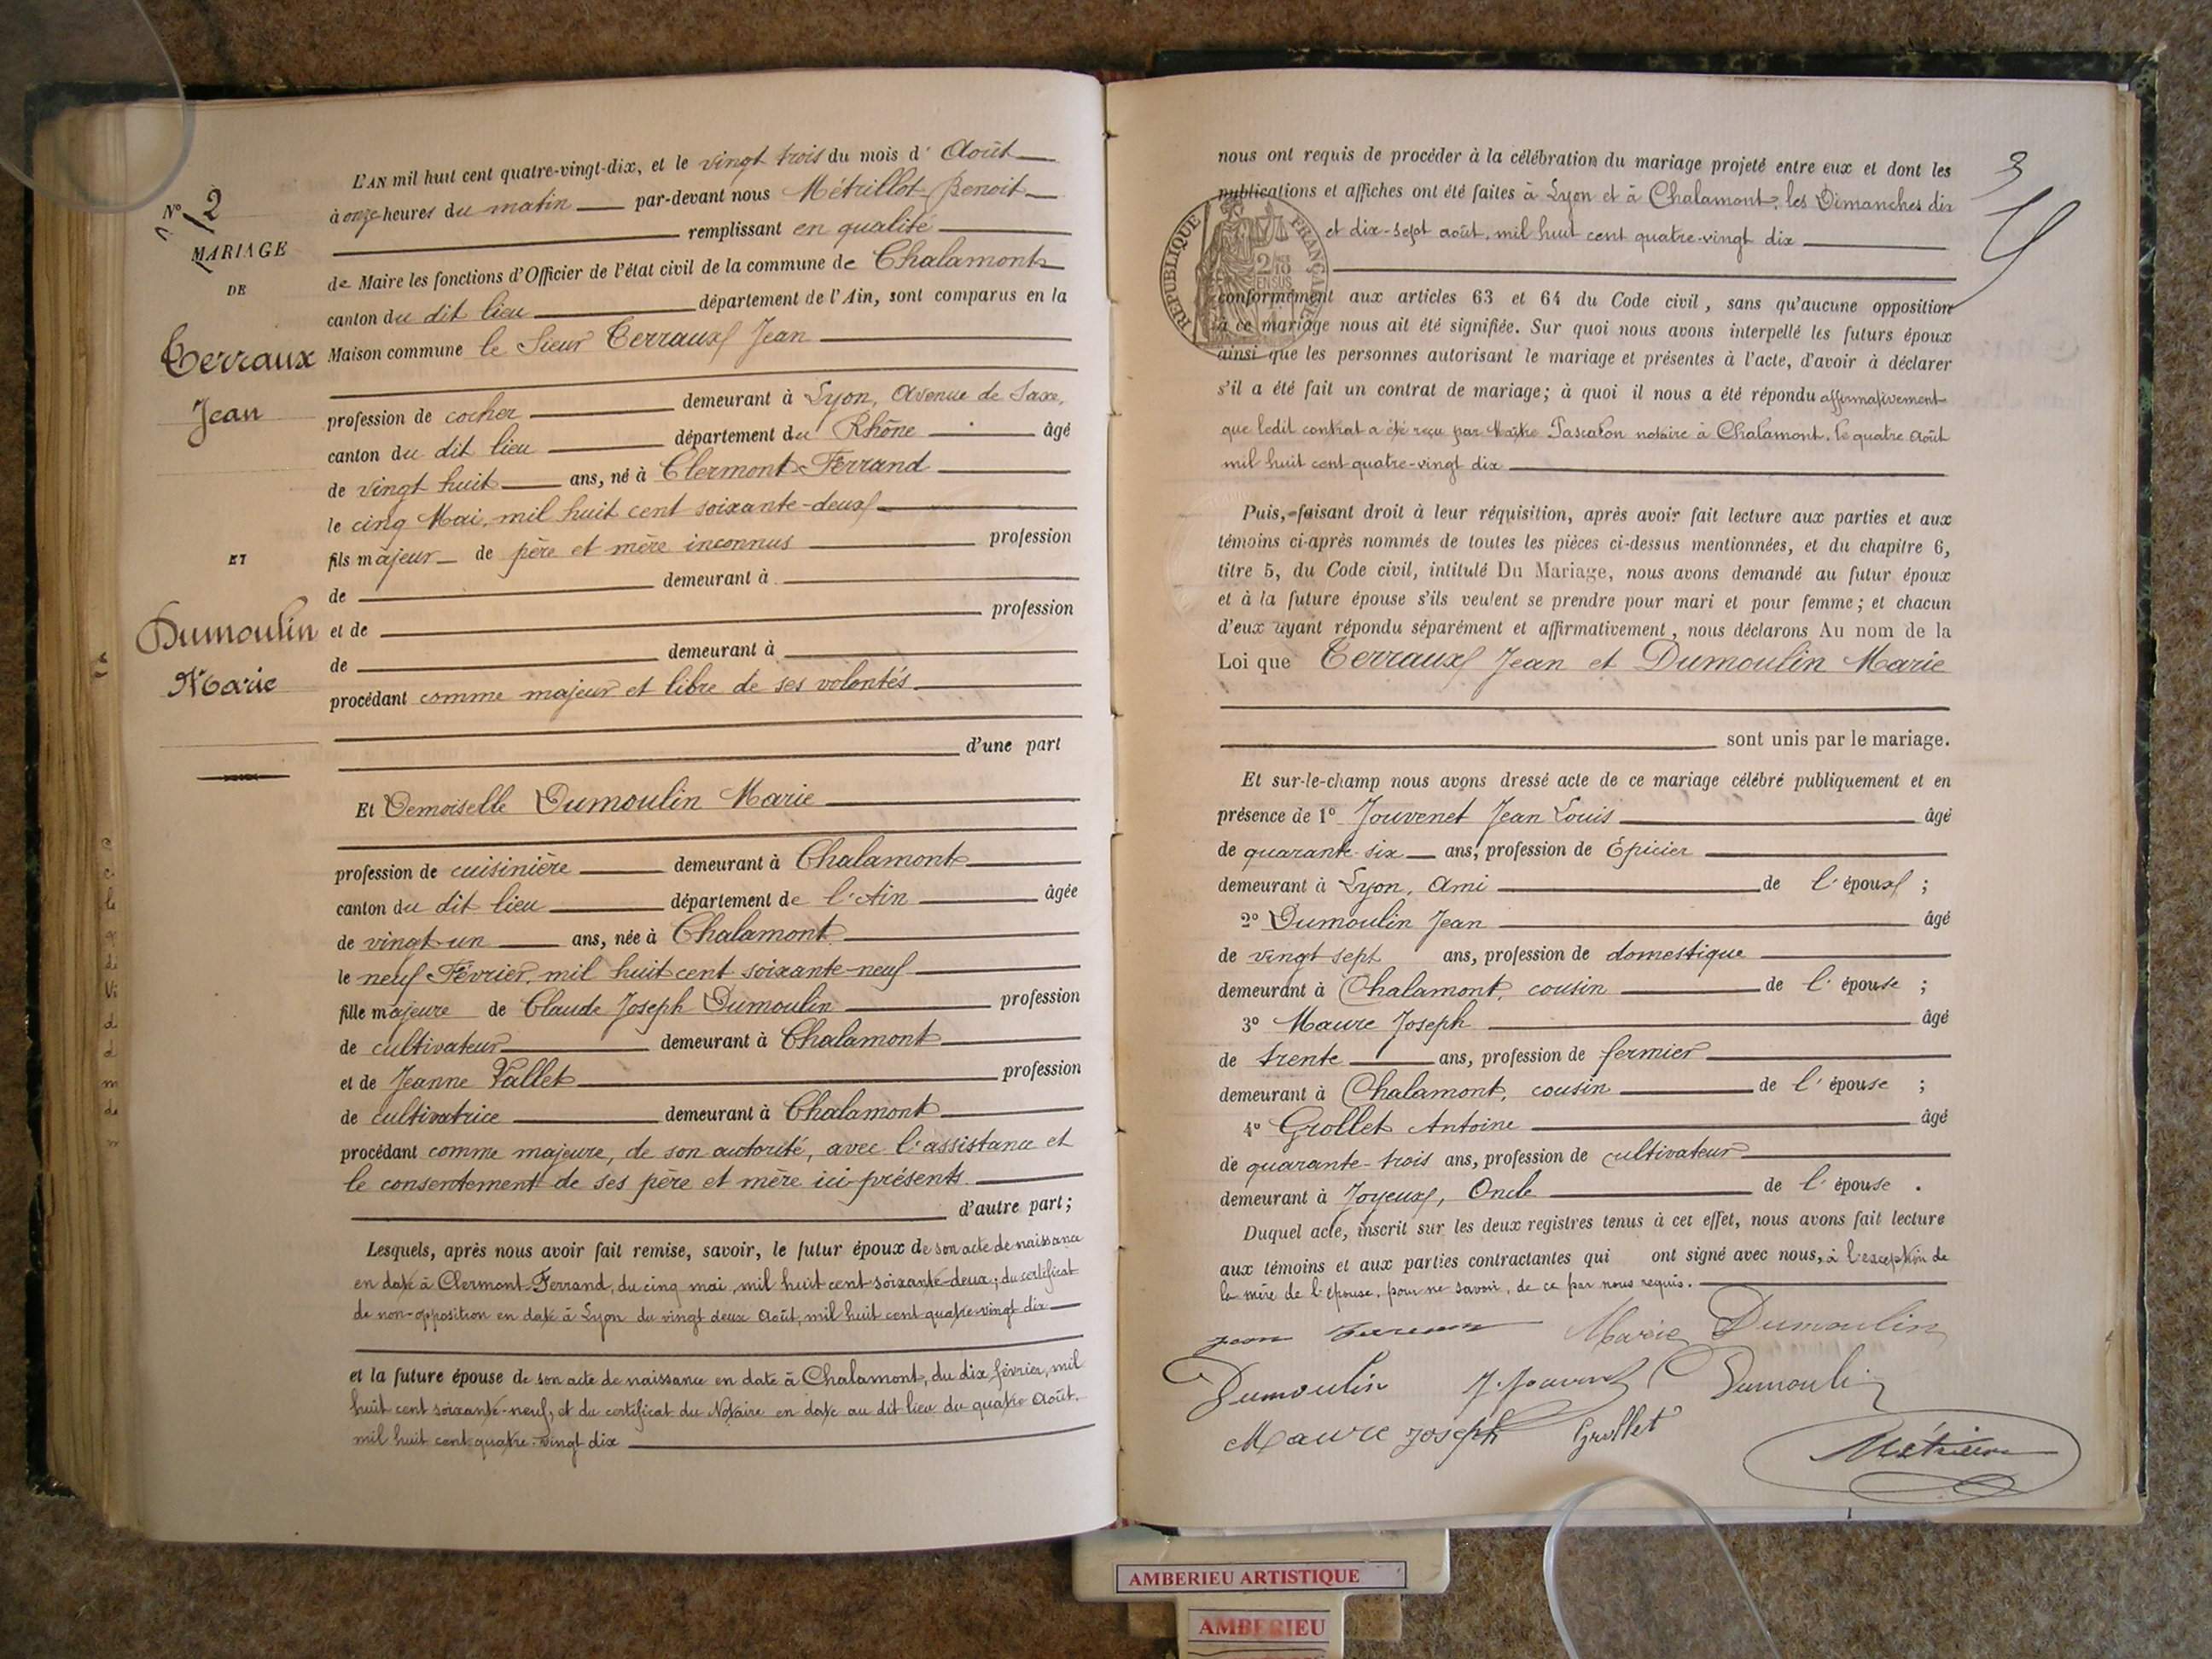 N° 2
MARIAGE
DE
Terraux
Jean
ET
Dumoulin
Marie
L'AN mil huit cent quatre-vingt-dix, et le vingt trois du mois d' Août
à onze heures du matin par-devant nous Métrillot Benoit
remplissant en qualité
de Maire les fonctions d'Officier de l'état civil de la commune de Chalamont
canton du dit lieu département de l'Ain, sont comparus en la
Maison commune le Sieur Terraux Jean
profession de cocher demeurant à Lyon, Avenue de Saxe,
canton du dit lieu département du Rhône âgé
de vingt huit ans, né à Clermont-Ferrand
le cinq Mai, mil huit cent soixante-deux
fils majeur de père et mère inconnus profession
de demeurant à
et de profession
de demeurant à
procédant comme majeur et libre de ses volontés
d'une part
Et Demoiselle Dumoulin Marie
profession de cuisinière demeurant à Chalamont
canton du dit lieu département de l'Ain âgée
de vingt-un ans, née à Chalamont
le neuf Février, mil huit cent soixante-neuf
fille majeure de Claude Joseph Dumoulin profession
de cultivateur demeurant à Chalamont
et de Jeanne Vallet profession
de cultivatrice demeurant à Chalamont
procédant comme majeure, de son autorité, avec l'assistance et
le consentement de ses père et mère ici-présents
d'autre part;
Lesquels, après nous avoir fait remise, savoir, le futur époux de son acte de naissance
en date à Clermont-Ferrand, du cinq mai, mil huit cent soixante-deux; du certificat
de non-opposition en date à Lyon du vingt deux Août, mil huit cent quatre-vingt dix
et la future épouse de son acte de naissance en date à Chalamont, du dix février, mil
huit cent soixante-neuf, et du certificat du Notaire en date au dit lieu du quatre Août.
mil huit cent quatre-vingt dix
3
nous ont requis de procéder à la célébration du mariage projeté entre eux et dont les
publications et affiches ont été faites à Lyon et à Chalamont, les Dimanches dix
et dix-sept août, mil huit cent quatre-vingt dix
RÉPUBLIQUE FRANÇAISE
2/10 EN SUS
conformément aux articles 63 et 64 du Code civil, sans qu'aucune opposition
à ce mariage nous ait été signifiée. Sur quoi nous avons interpellé les futurs époux
ainsi que les personnes autorisant le mariage et présentes à l'acte, d'avoir à déclarer
s'il a été fait un contrat de mariage; à quoi il nous a été répondu affirmativement
que ledit contrat a été reçu par Maître Pascalon notaire à Chalamont, le quatre Août
mil huit cent quatre-vingt dix
Puis, faisant droit à leur réquisition, après avoir fait lecture aux parties et aux
témoins ci-après nommés de toutes les pièces ci-dessus mentionnées, et du chapitre 6,
titre 5, du Code civil, intitulé Du Mariage, nous avons demandé au futur époux
et à la future épouse s'ils veulent se prendre pour mari et pour femme; et chacun
d'eux ayant répondu séparément et affirmativement, nous déclarons Au nom de la
Loi que Terraux Jean et Dumoulin Marie
sont unis par le mariage.
Et sur-le-champ nous avons dressé acte de ce mariage célébré publiquement et en
présence de 1° Jouvenet Jean Louis âgé
de quarante-six ans, profession de Épicier
demeurant à Lyon, Ami de l'époux;
2° Dumoulin Jean âgé
de vingt sept ans, profession de domestique
demeurant à Chalamont, cousin de l'épouse;
3° Maure Joseph âgé
de trente ans, profession de fermier
demeurant à Chalamont, cousin de l'épouse;
4° Grollet Antoine âgé
de quarante-trois ans, profession de cultivateur
demeurant à Joyeux, Oncle de l'épouse.
Duquel acte, inscrit sur les deux registres tenus à cet effet, nous avons fait lecture
aux témoins et aux parties contractantes qui ont signé avec nous, à l'exception de
la mère de l'épouse, pour ne savoir, de ce par nous requis.
Jean Terraux Marie Dumoulin
Dumoulin J. Jouvenet Dumoulin
Maure Joseph Grollet
AMBERIEU ARTISTIQUE
AMBERIEU